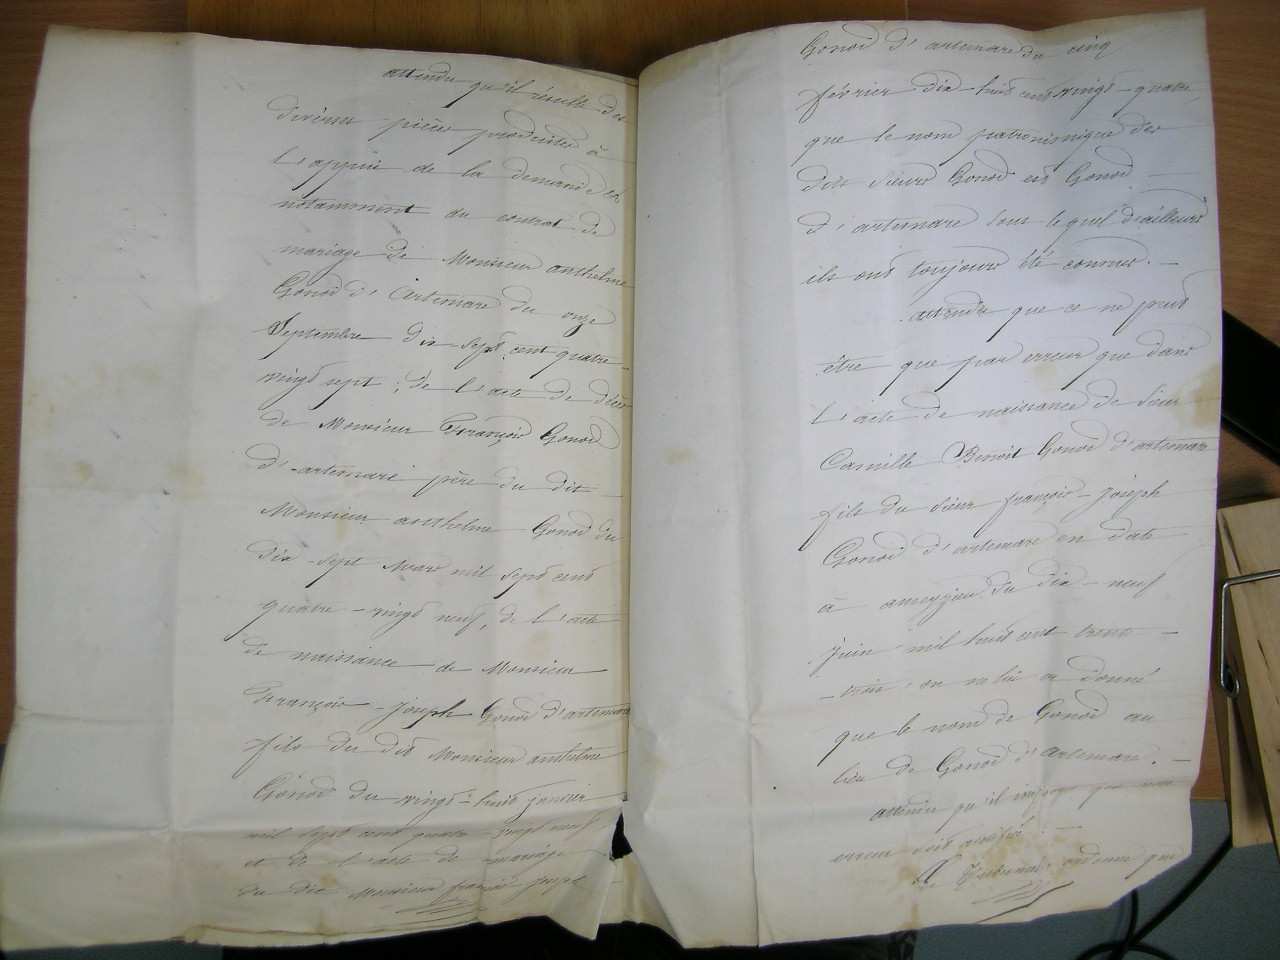 attendu qu'il résulte des
diverses pièces produites à
l'appui de la demande et
notamment du contrat de
mariage de Monsieur anthelme
Gonod d'Artemare du onze
Septembre dix sept cent quatre-
vingt sept ; de l'acte de décès
de Monsieur François Gonod
d'artemare père du dit
Monsieur anthelme Gonod du
dix-sept Mars mil sept cent
quatre-vingt neuf, de l'acte
de naissance de Monsieur
François-joseph Gonod d'artemare
fils du dit Monsieur anthelme
Gonod du vingt-huit janvier
mil sept cent quatre-vingt neuf
et de l'acte de mariage
du dit Monsieur françois joseph
Gonod d'artemare du cinq
février dix-huit cent vingt-quatre,
que le nom patronimique des
dits sieurs Gonod est Gonod
d'artemare sous lequel d'ailleurs
ils ont toujours été connus.
attendu que ce ne peut
être que par erreur que dans
l'acte de naissance de sieur
Camille Benoit Gonod d'artemare
fils du sieur françois-joseph
Gonod d'artemare en date
à ameyzieu du dix-neuf
juin mil huit cent trente-
trois, on ne lui a donné
que le nom de Gonod au
lieu de Gonod d'Artemare.
attendu qu'il que
erreur soit
Le Tribunal ordonne que